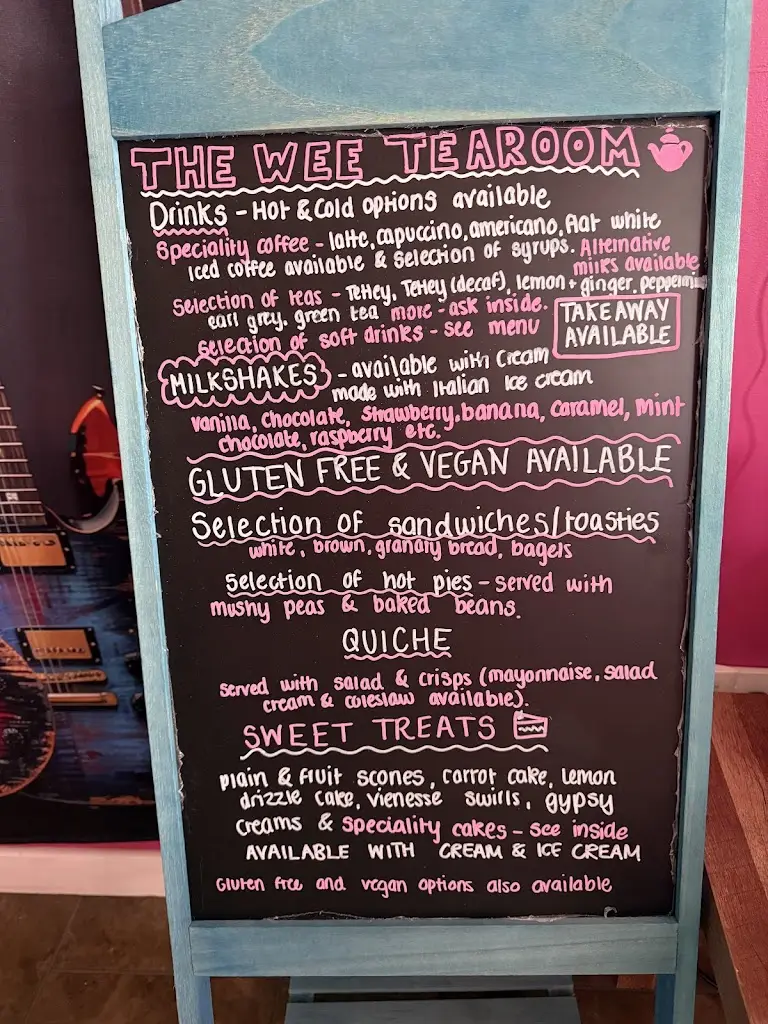 THE WEE TEAROOM
Drinks - Hot & Cold options available
Speciality coffee - latte, capuccino, americano, flat white
Iced coffee available & selection of syrups. Alternative
milks available
Selection of teas - Tetley, Tetley (decaf), lemon + ginger, peppermint
earl grey, green tea more - ask inside.
selection of soft drinks - see menu
TAKEAWAY
AVAILABLE
MILKSHAKES - available with Cream
made with Italian Ice cream
vanilla, chocolate, strawberry, banana, caramel, mint
chocolate, raspberry etc.
GLUTEN FREE & VEGAN AVAILABLE
Selection of sandwiches/toasties
white, brown, granary bread, bagels
Selection of hot pies - served with
mushy peas & baked beans.
QUICHE
served with salad & crisps (mayonnaise, salad
cream & coleslaw available).
SWEET TREATS
plain & fruit scones, carrot cake, lemon
drizzle cake, vienesse swirls, gypsy
creams & speciality cakes - see inside
AVAILABLE WITH CREAM & ICE CREAM
Gluten free and vegan options also available